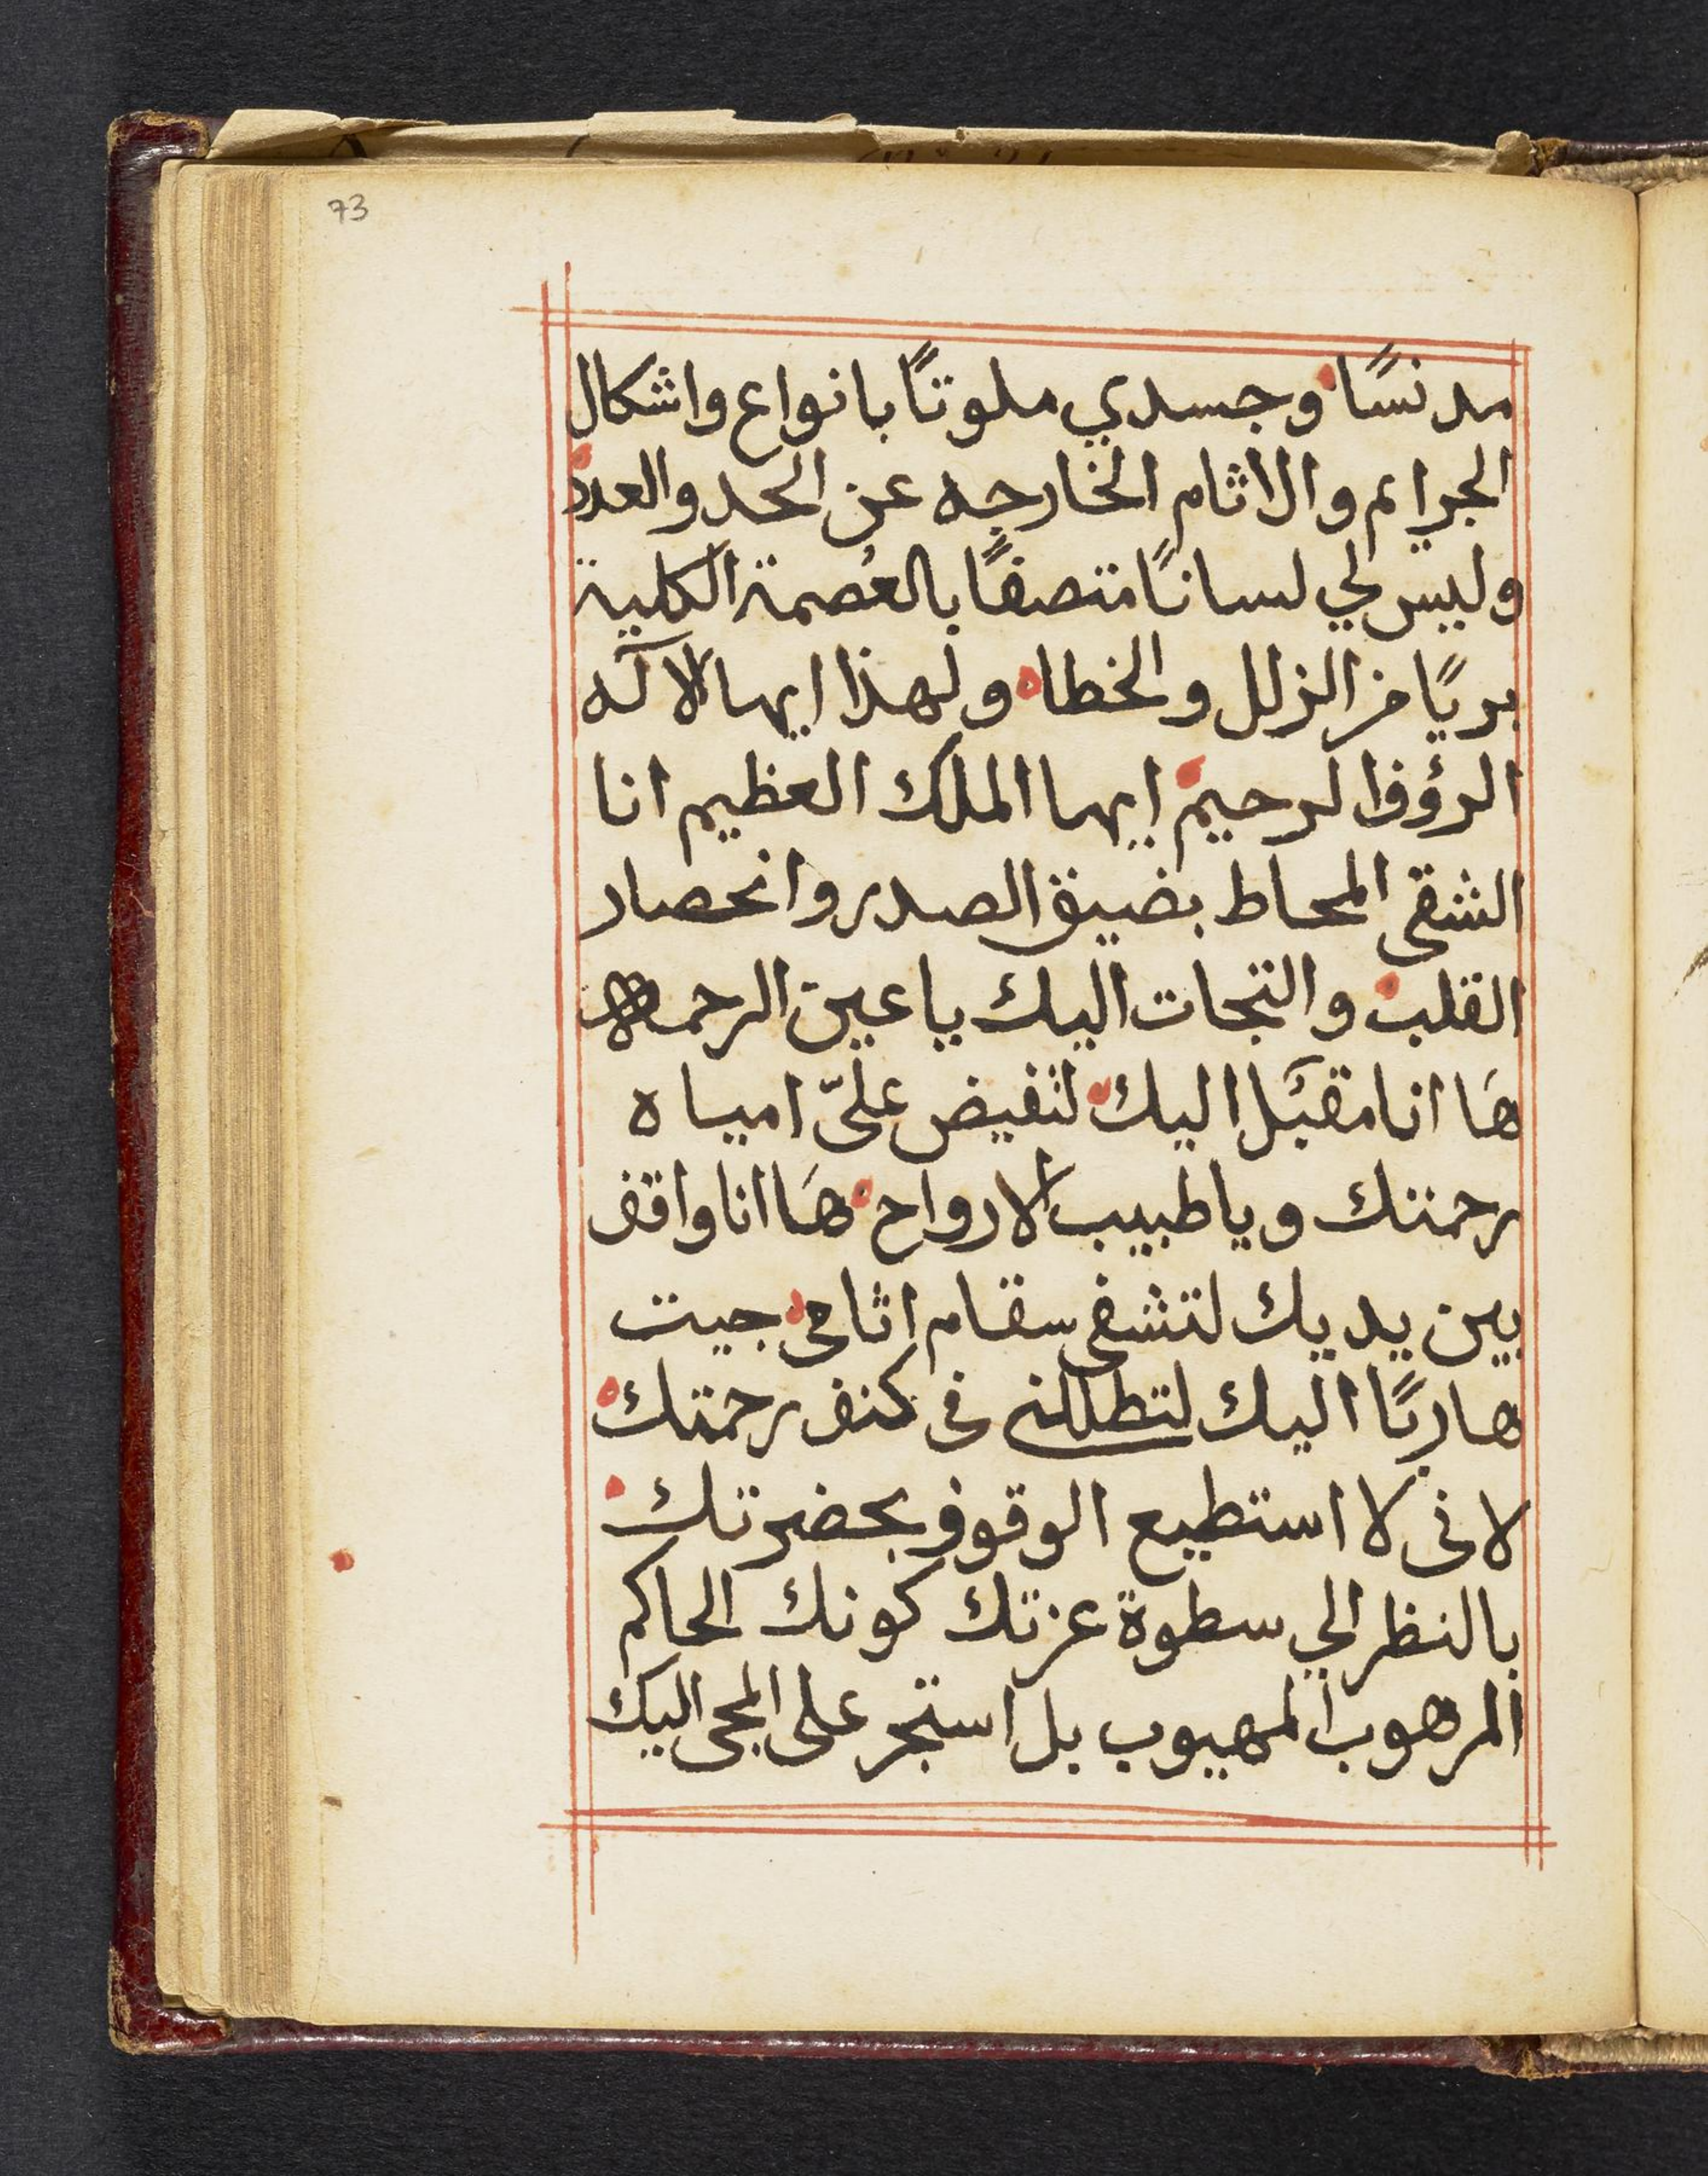 73
مدنسًا وجسدي ملوتًا بانواع واشكال
الجرايم والاثام الخارجه عن الحد والعدد
وليس لي لسانًا متصفًا بالعُصمة الكلية
بريًا من الزلل والخطاه ولهذا ايها الاله
الرؤوف الرحيم ايها الملك العظيم انا
الشقى المحاط بضيق الصدر وانحصار
القلب والتجات اليك يا عين الرحمه
هَا انا مقبَل اليك لتفيض علىّ امياه
رحمتك ويا طبيب الارواح هَا انا واقف
بين يديك لتشفى سقام اثامى جيت
هاربًا اليك لتطللنى فى كنف رحمتك
لانى لا استطيع الوقوف بحضرتك
بالنظر الي سطوة عزتك كونك الحاكم
المرهوب المهيوب بل استجر على المجى اليك